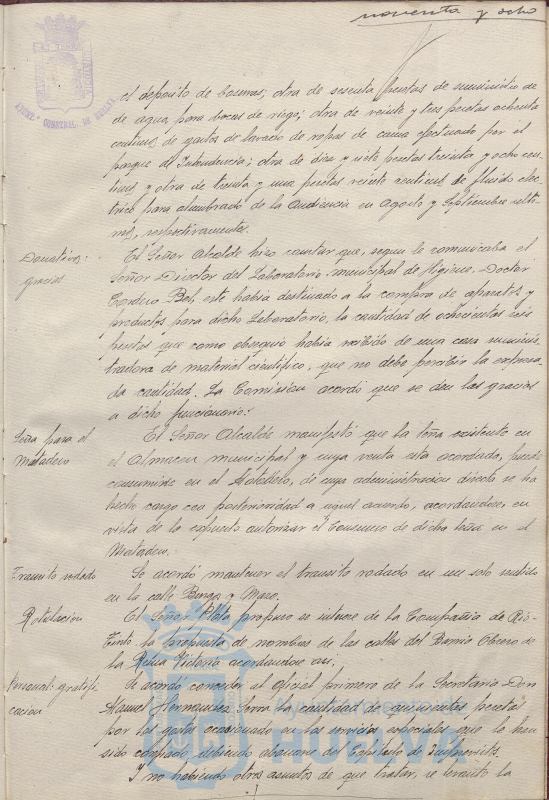 noventa y ocho
el deposito de bombas; otra de sesenta pesetas de suministro de
de agua para bocas de riego; otra de veinte y tres pesetas ochenta
centimos de gastos de lavado de ropas de cama efectuado por el
parque de Intendencia; otra de diez y siete pesetas treinta y ocho cen-
timos y otra de treinta y una pesetas veinte centimos de fluido elec-
trico para alumbrado de la Audiencia en Agosto y Septiembre ulti-
mos, respectivamente.
Donativos:
gracias
El Señor Alcalde hizo constar que, segun le comunicaba el
Señor Director del Laboratorio municipal de Higiene, Doctor
Cordero Bel, este habia destinado a la compra de aparatos y
productos para dicho Laboratorio, la cantidad de ochocientas seis
pesetas que como obsequio habia recibido de una casa suminis-
tradora de material cientifico, que no debe percibir la expresa-
da cantidad. La Comision acordó que se den las gracias
a dicho funcionario.
Leña para el
Matadero
El Señor Alcalde manifestó que la leña existente en
el Almacen municipal y cuya venta esta acordada, puede
consumirse en el Matadero, de cuya administracion directa se ha
hecho cargo con posterioridad a aquel acuerdo, acordandose, en
vista de lo expuesto autorizar el consumo de dicha leña en el
Matadero.
Transito rodado
Se acordó mantener el transito rodado en un solo sentido
en la calle Burgos y Mazo.
Rotulacion
El Señor propuso se interese de la Compañia de Rio-
Tinto la propuesta de nombres de las calles del Barrio Obrero de
la Reina Victoria acordandose asi.
Personal: gratifi-
cacion
Se acordó conceder al oficial primero de la Secretaria Don
Manuel Hernandez Serra la cantidad de quinientas pesetas
por los gastos ocasionado en los servicios especiales que le han
sido confiado debiendo abonarse del Capitulo de Imprevistos.
Y no habiendo otros asuntos de que tratar, se levantó la